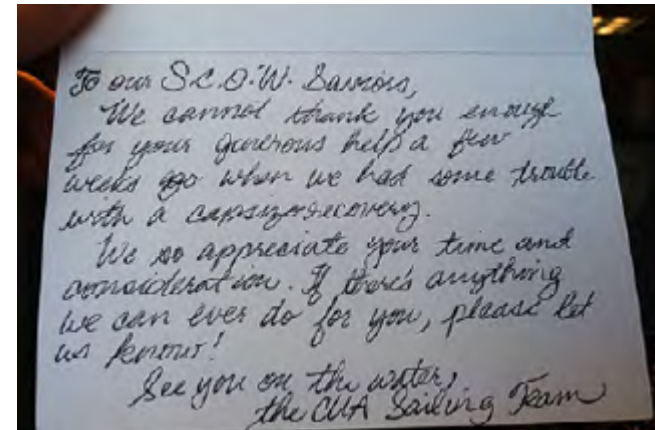 To our S.C.O.W. Saviors,
We cannot thank you enough
for your generous help a few
weeks ago when we had some trouble
with a capsize recovery.
We so appreciate your time and
consideration. If there's anything
we can ever do for you, please let
us know!
See you on the water,
the CUA Sailing Team